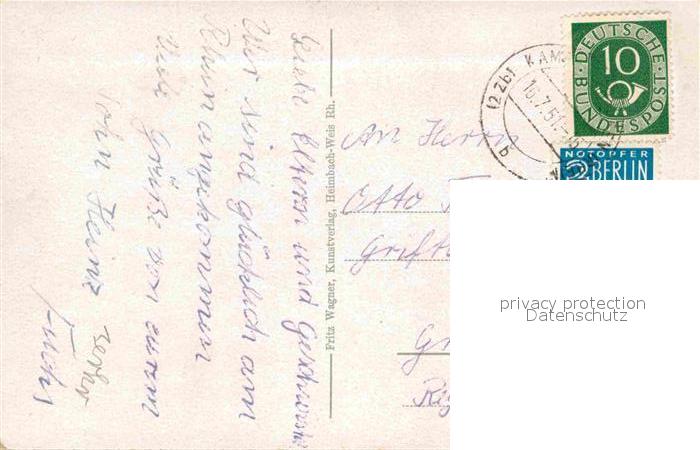 Liebe Eltern und Geschwister
Wir sind glücklich am
Rhein angekommen
Viele Grüße von eurem
Sohn Heinz
Fuchs
Fritz Wagner, Kunstverlag, Heimbach-Weis Rh.
An Herrn
Otto
DEUTSCHE
BUNDESPOST
10
NOTOPFER
2 BERLIN
(22b) KAM
16.7.51
b
privacy protection
Datenschutz